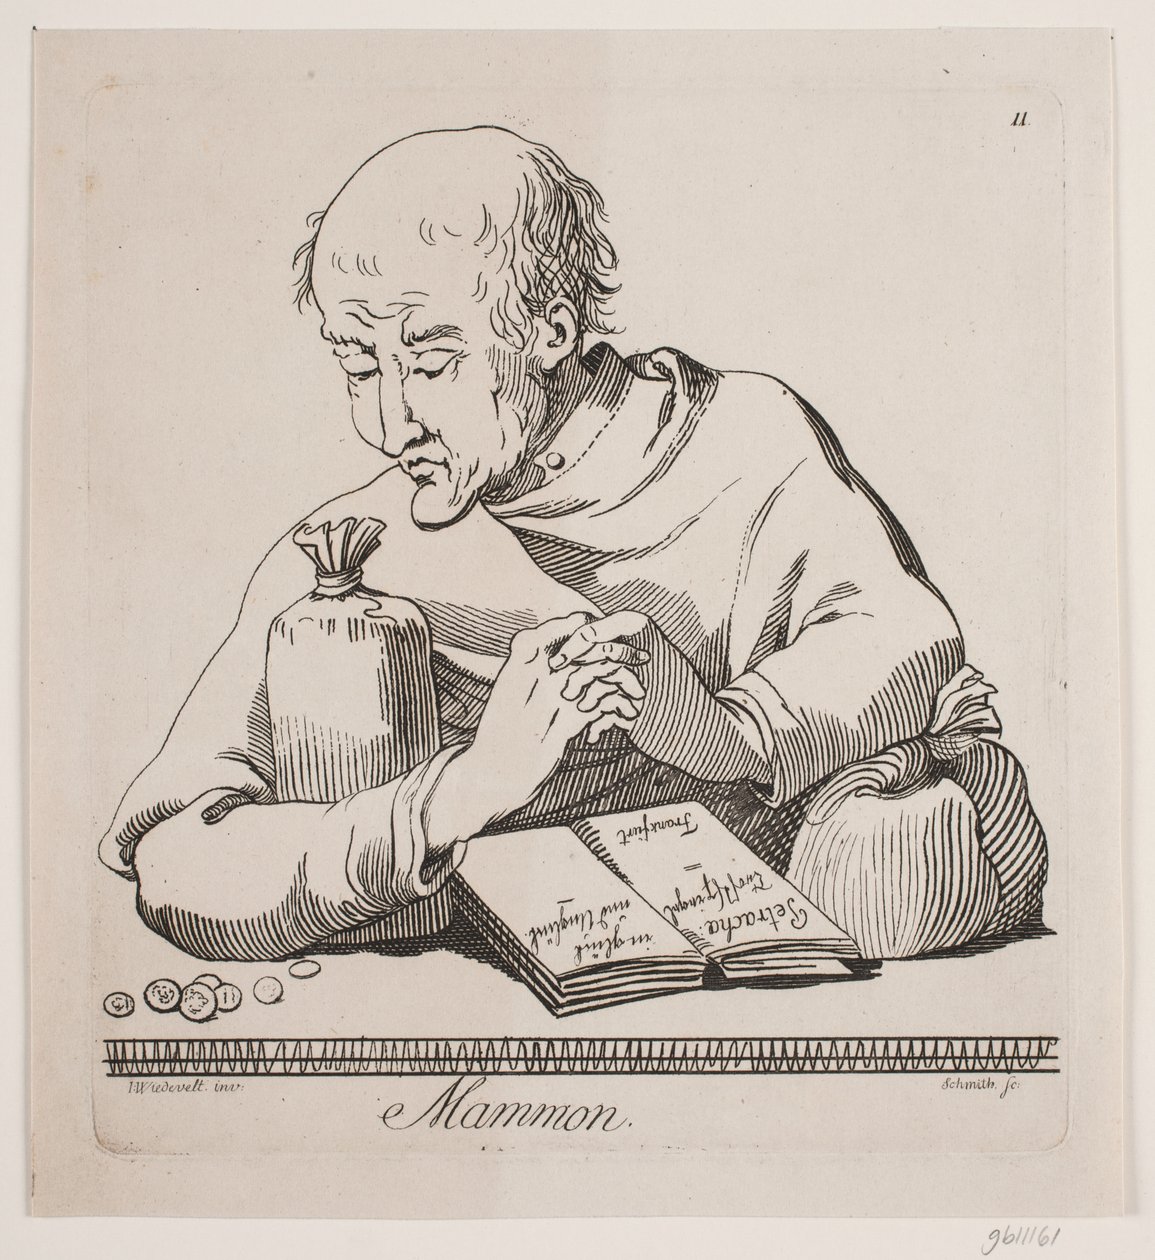 11.
Petracha:
Trostspiegel
=
Frankfurt
in glück
und Unglück
I. Wiedevelt. inv:
Schmith. sc:
Mammon.
gb11161